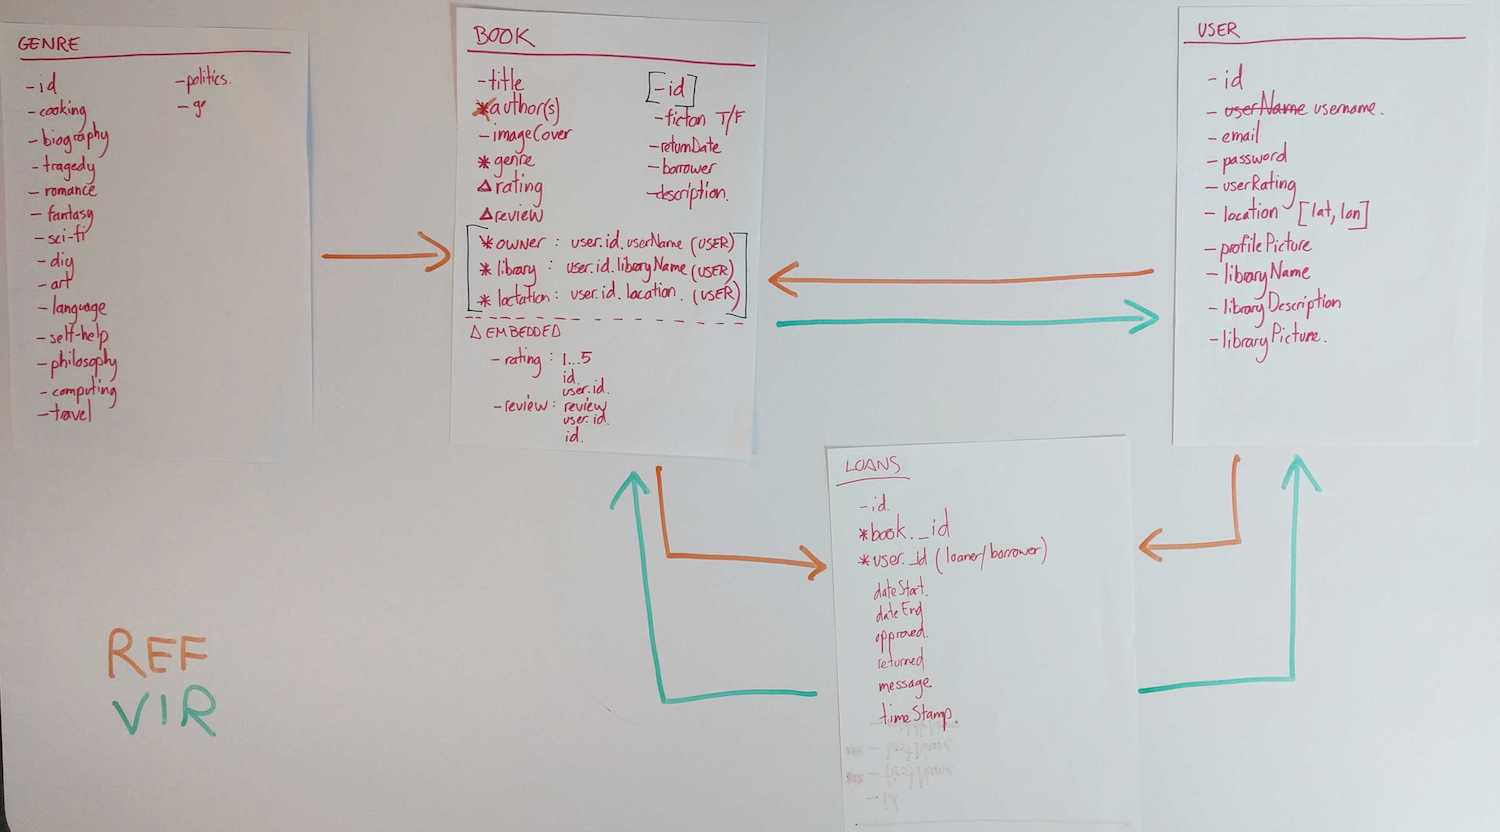 GENRE
- id
- cooking
- biography
- tragedy
- romance
- fantasy
- sci-fi
- diy
- art
- language
- self-help
- philosophy
- computing
- travel
- politics.
- ge
BOOK
- title
* author(s)
- imageCover
* genre
△ rating
△ review
[- id]
- ficton T/F
- returnDate
- borrower
- description.
* owner : user.id.userName (USER)
* library : user.id.libraryName (USER)
* loctation : user.id.location. (USER)
△ EMBEDDED
- rating : 1...5
id
user.id.
- review : review
user.id.
id.
USER
- id
- userName username.
- email
- password
- userRating
- location [lat, lon]
- profilePicture
- libraryName
- libraryDescription
- libraryPicture.
LOANS
- id.
* book._id
* user._id (loaner/borrower)
dateStart.
dateEnd
approved.
returned
message
timeStamp.
REF
VIR